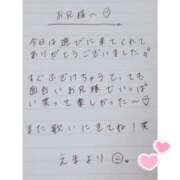 お兄様へ♡
今日は遊びに来てくれて
ありがとうございました♡
すぐふざけちゃうとっても
面白いお兄様でいっぱ
い笑って楽しかった〜♡
また歌いに来てね！笑
えまより